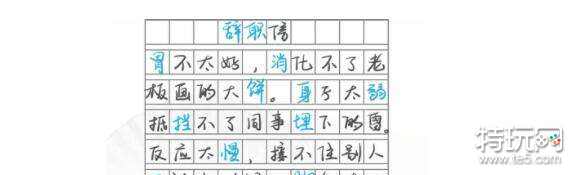 辞职信
胃不太好，消化不了老
板画的大饼。身子太弱
抵挡不了同事埋下的雷。
反应太慢，接不住别人
特玩网
www.te5.com